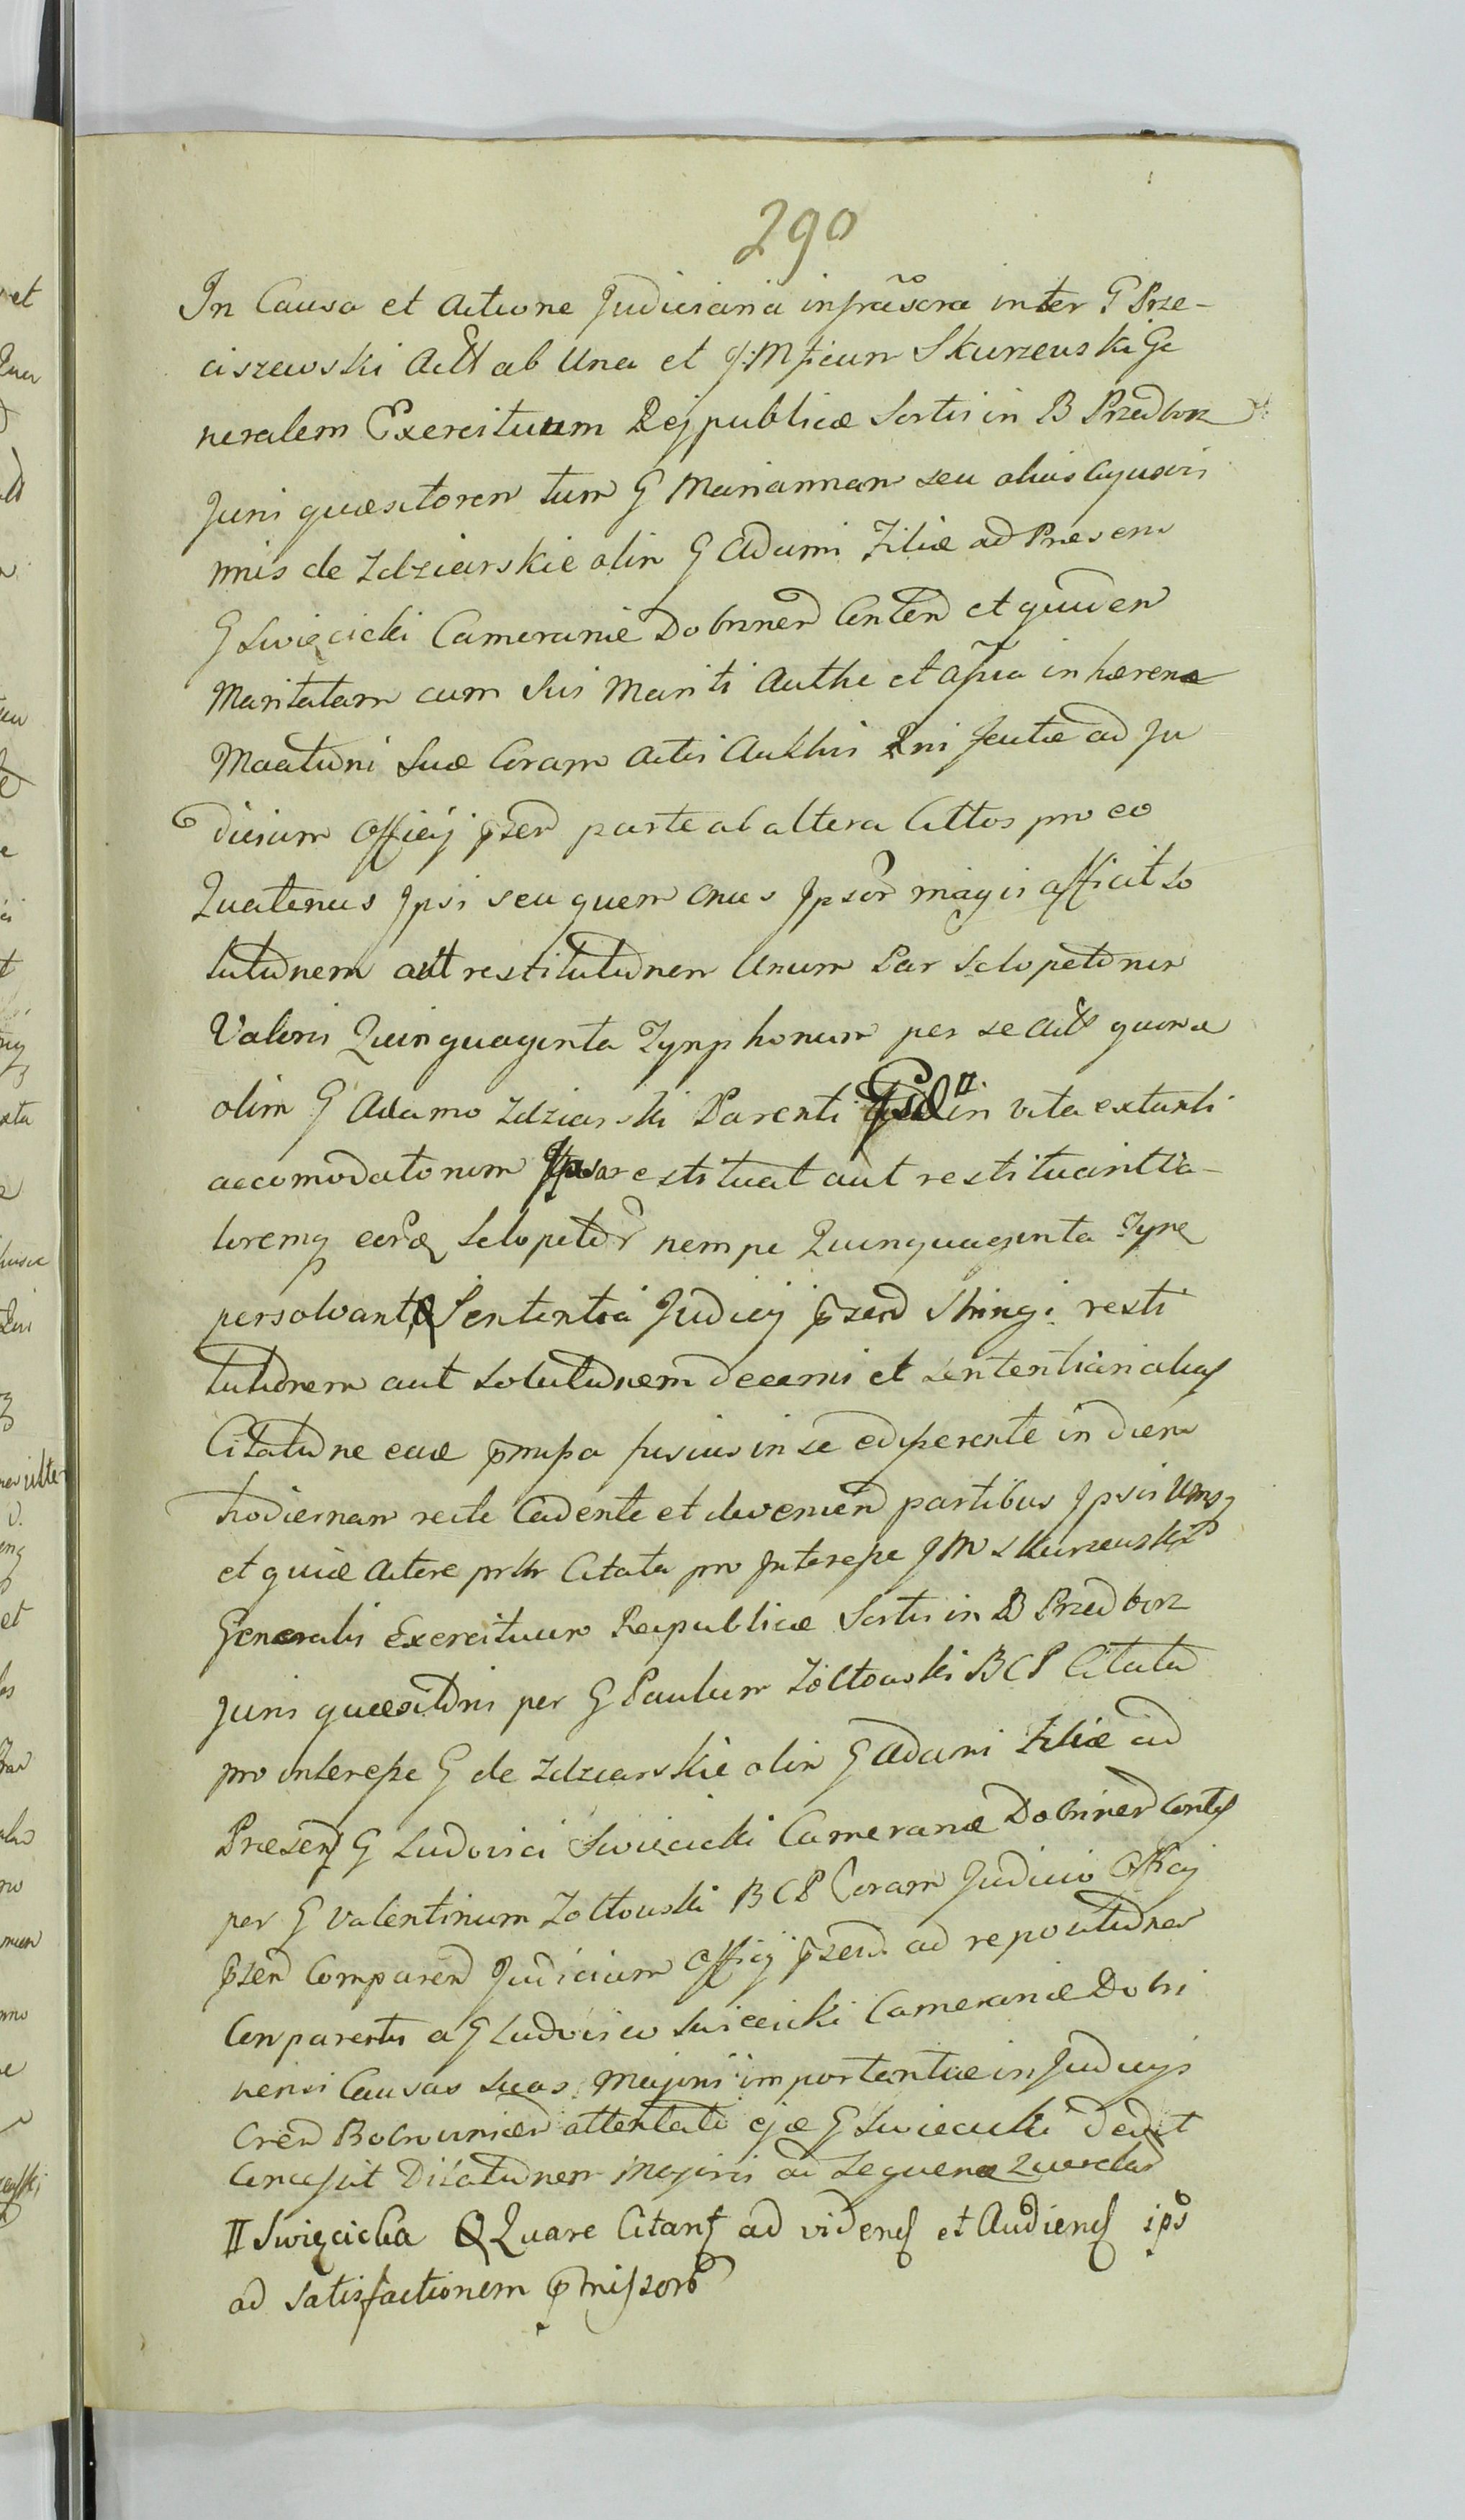 290
In Causa et Actione Judiciaria infrascra inter G Prze-
ciszewski Act ab Una et J: M ficum Skurzewski Ge
neralem Exercituum Reipublicæ Sortis in B Przedborz
Juris quæsitorem tum G Mariannam seu alias cujusvis
nnis de Zdziarskie olim G Adami Filiæ ad Præsens
G Swięcicki Cameranie Dobrinen Conten et quidem
Maritatam cum sui Mariti Authe et assa inhærene
Maationi Suæ Coram Actis Authis factæ ad Ju
dicium Officij pzen parte ab altera Cittos pro eo
Quatenus Ipsi seu quem onus Ipsor magis afficit So
lutionem aut restitutionem Unum Par Sclopetonum
Valoris Quinquaginta Tynphonum per se Act quona
olim G Adamo Zdziarski Parenti II in vita extanti
accomodatorum restituat aut restituant Va-
loremq eor Sclopetor nempe Quinquaginta Tyne
persolvant & Sententia Judicij pzen stringi resti
tutionem aut Solutionem decerni et sententiari alias
Citatione eaæ pmissa fusius in se edisserente in diem
hodiernam recte Cadente et devenien partibus Ipsis Utrisq
et quiæ Actore pr Citata pro Interesse J M Skurzewski
Generalis Exercituum Reipublicæ Sortis in B Przedborz
Juris quæsitoris per G Paulum Zołtowski B C P Citata
pro interesse G de Zdziarskie olim G Adami Filiæ ad
Præsens G Ludovici Swięcicki Cameranæ Dobrinen Contes
per G Valentinum Zołtowski B C P Coram Judicio Offcij
pzen Comparen Judicium Officij pzen ad repositiones
Comparentis a G Ludovico Swięcicki Cameraniæ Dobri
nensi Causas Suas Majoris importantiæ in Judicijs
attentati ejæ G Swięcicki dedit
Concessit Dilationem Majoris ad Sequene
II Swięcicka & Quare Citant ad videndum et Audiendum ips
ad Satisfactionem pmissor